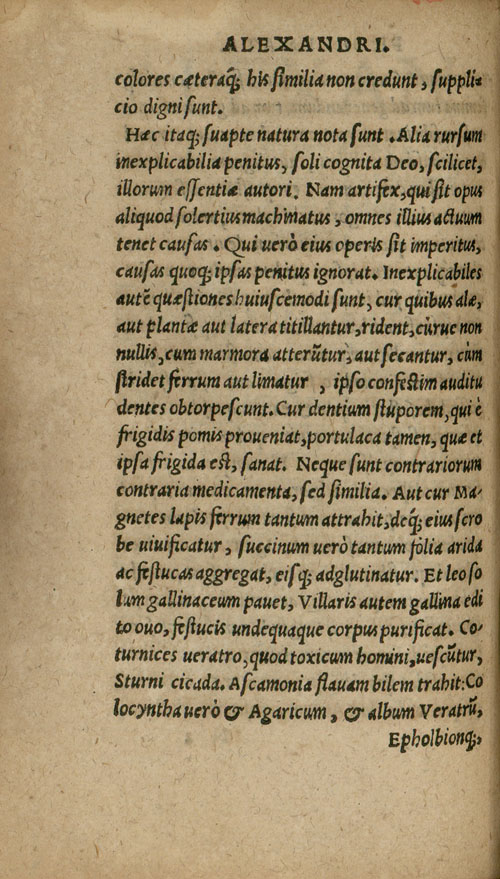 ALEXANDRI.
colores cæteraq́; his similia non credunt, suppli-
cio digni sunt.
Hæc itaq; suapte natura nota sunt. Alia rursum
inexplicabilia penitus, soli cognita Deo, scilicet,
illorum essentiæ autori. Nam artifex, qui sit opus
aliquod solertius machinatus, omnes illius actuum
tenet causas. Qui uerò eius operis sit imperitus,
causas quoq; ipsas penitus ignorat. Inexplicabiles
autẽ quæstiones huiuscemodi sunt, cur quibus alæ,
aut plantæ aut latera titillantur, rident, cùrue non
nullis, cum marmora atterũtur, aut secantur, cùm
stridet ferrum aut limatur, ipso confestim auditu
dentes obtorpescunt. Cur dentium stuporem, qui è
frigidis pomis proueniat, portulaca tamen, quæ et
ipsa frigida est, sanat. Neque sunt contrariorum
contraria medicamenta, sed similia. Aut cur Ma-
gnetes lapis ferrum tantum attrahit, deq́; eius scro
be uiuificatur, succinum uerò tantum folia arida
ac festucas aggregat, eisq́; adglutinatur. Et leo so
lum gallinaceum pauet, Villaris autem gallina edi
to ouo, festucis undequaque corpus purificat. Co-
turnices ueratro, quod toxicum homini, uescũtur,
Sturni cicada. Ascamonia flauam bilem trahit: Co
locyntha uerò & Agaricum, & album Veratrũ,
Epholbionq́;,